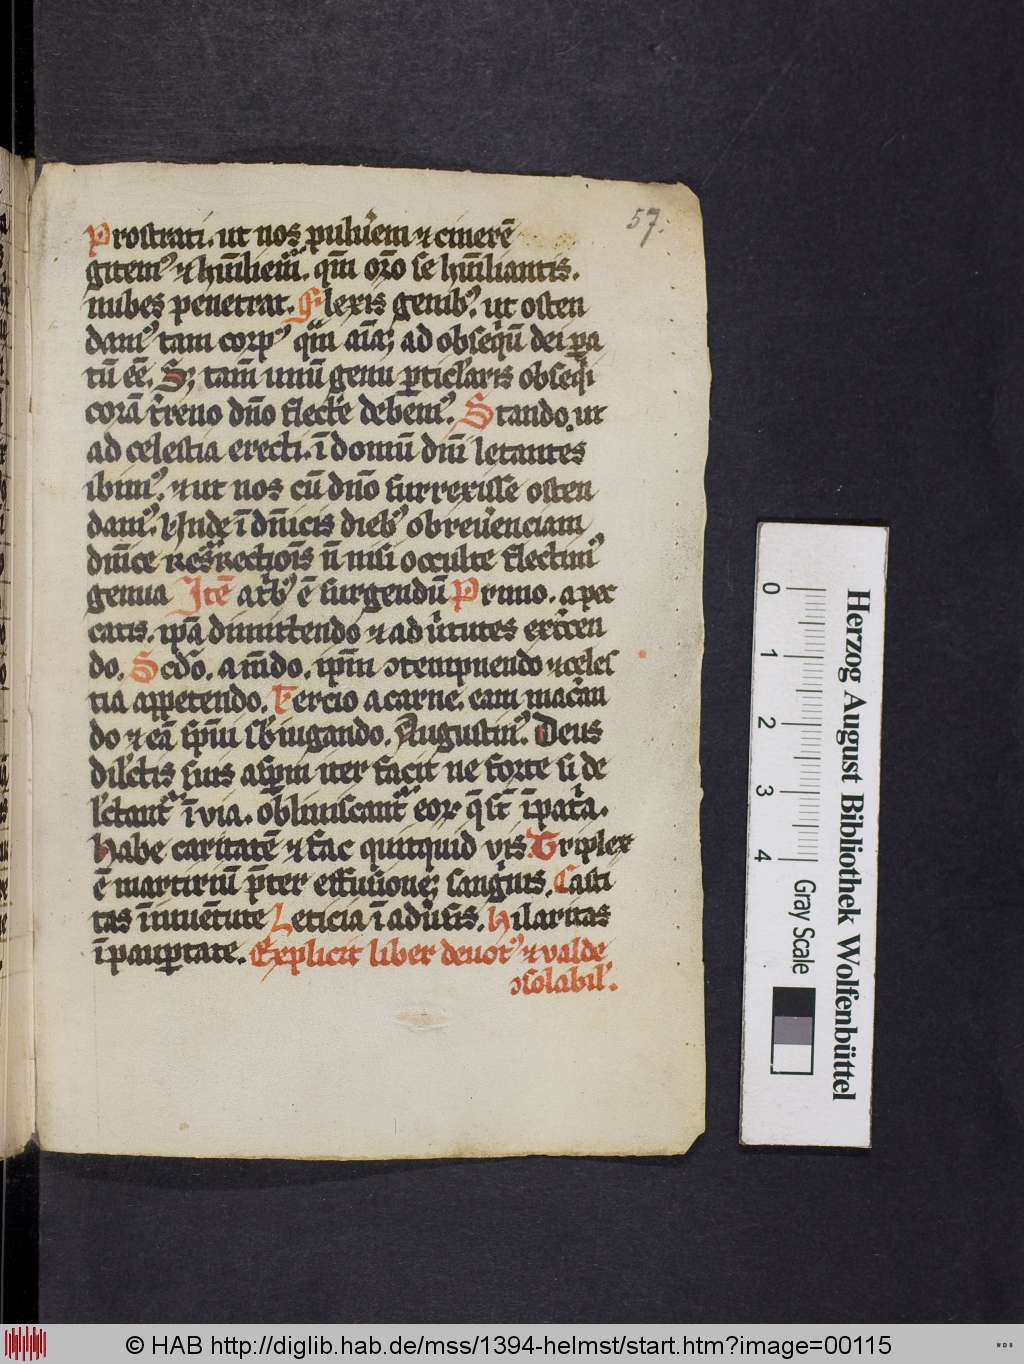 57.
Prostrati. ut nos pulu̾em ⁊ cinerē
gitem⁹ ⁊ hūiliem᷒. qm̄ or̄o se hūiliantis.
nubes penetrat. Flexis genib⁹. ut osten
dam⁹ tam corp⁹ qm̄ aīaꝫ ad obseq̄ū dei ꝑa
tū eē. Sꝫ tam̄ unū genu ꝑticl̾aris obseq̄i
corā t̾reno dn̄o flect̾e debem⁹. Stando. ut
ad celestia erecti. ī domū dn̄i letantes
ibim⁹. ⁊ ut nos cū dn̄o surrexisse osten
dam⁹. Vnde ī dn̄icis dieb⁹ ob reu̾enciam
dn̄ice resurrectiōis n̄ nisi occulte flectim⁹
genua Itē a trib⁹ ē surgendū Primo. a pec
catis. ip̄a dimittendo ⁊ ad u̾tutes ex̾cen
do. Scd̄o. a mūdo. ip̄m ɔtempnendo ⁊ celes
tia appetendo. Tercio a carne. eam mac̾an
do ⁊ eā sp̄iu sb̾iugando. Augustin⁹. Deus
dil̾ctis suis asꝑm iter facit ne forte si de
l̾ctant᷑ ī via. obliuiscant᷑ eoꝝ q̄ sūt ī pat̾a.
Habe caritatē ⁊ fac quitquid vis Triplex
ē martiriū p̄ter effusioneꝫ sang̾nis. Casti
tas ī iuuētute Leticia ī adu̾sis. Hilaritas
ī paup̱tate. Explicit liber deuot⁹ ⁊ valde
ɔsolabil̾.
Herzog August Bibliothek Wolfenbüttel
0 1 2 3 4 Gray Scale
© HAB http://diglib.hab.de/mss/1394-helmst/start.htm?image=00115